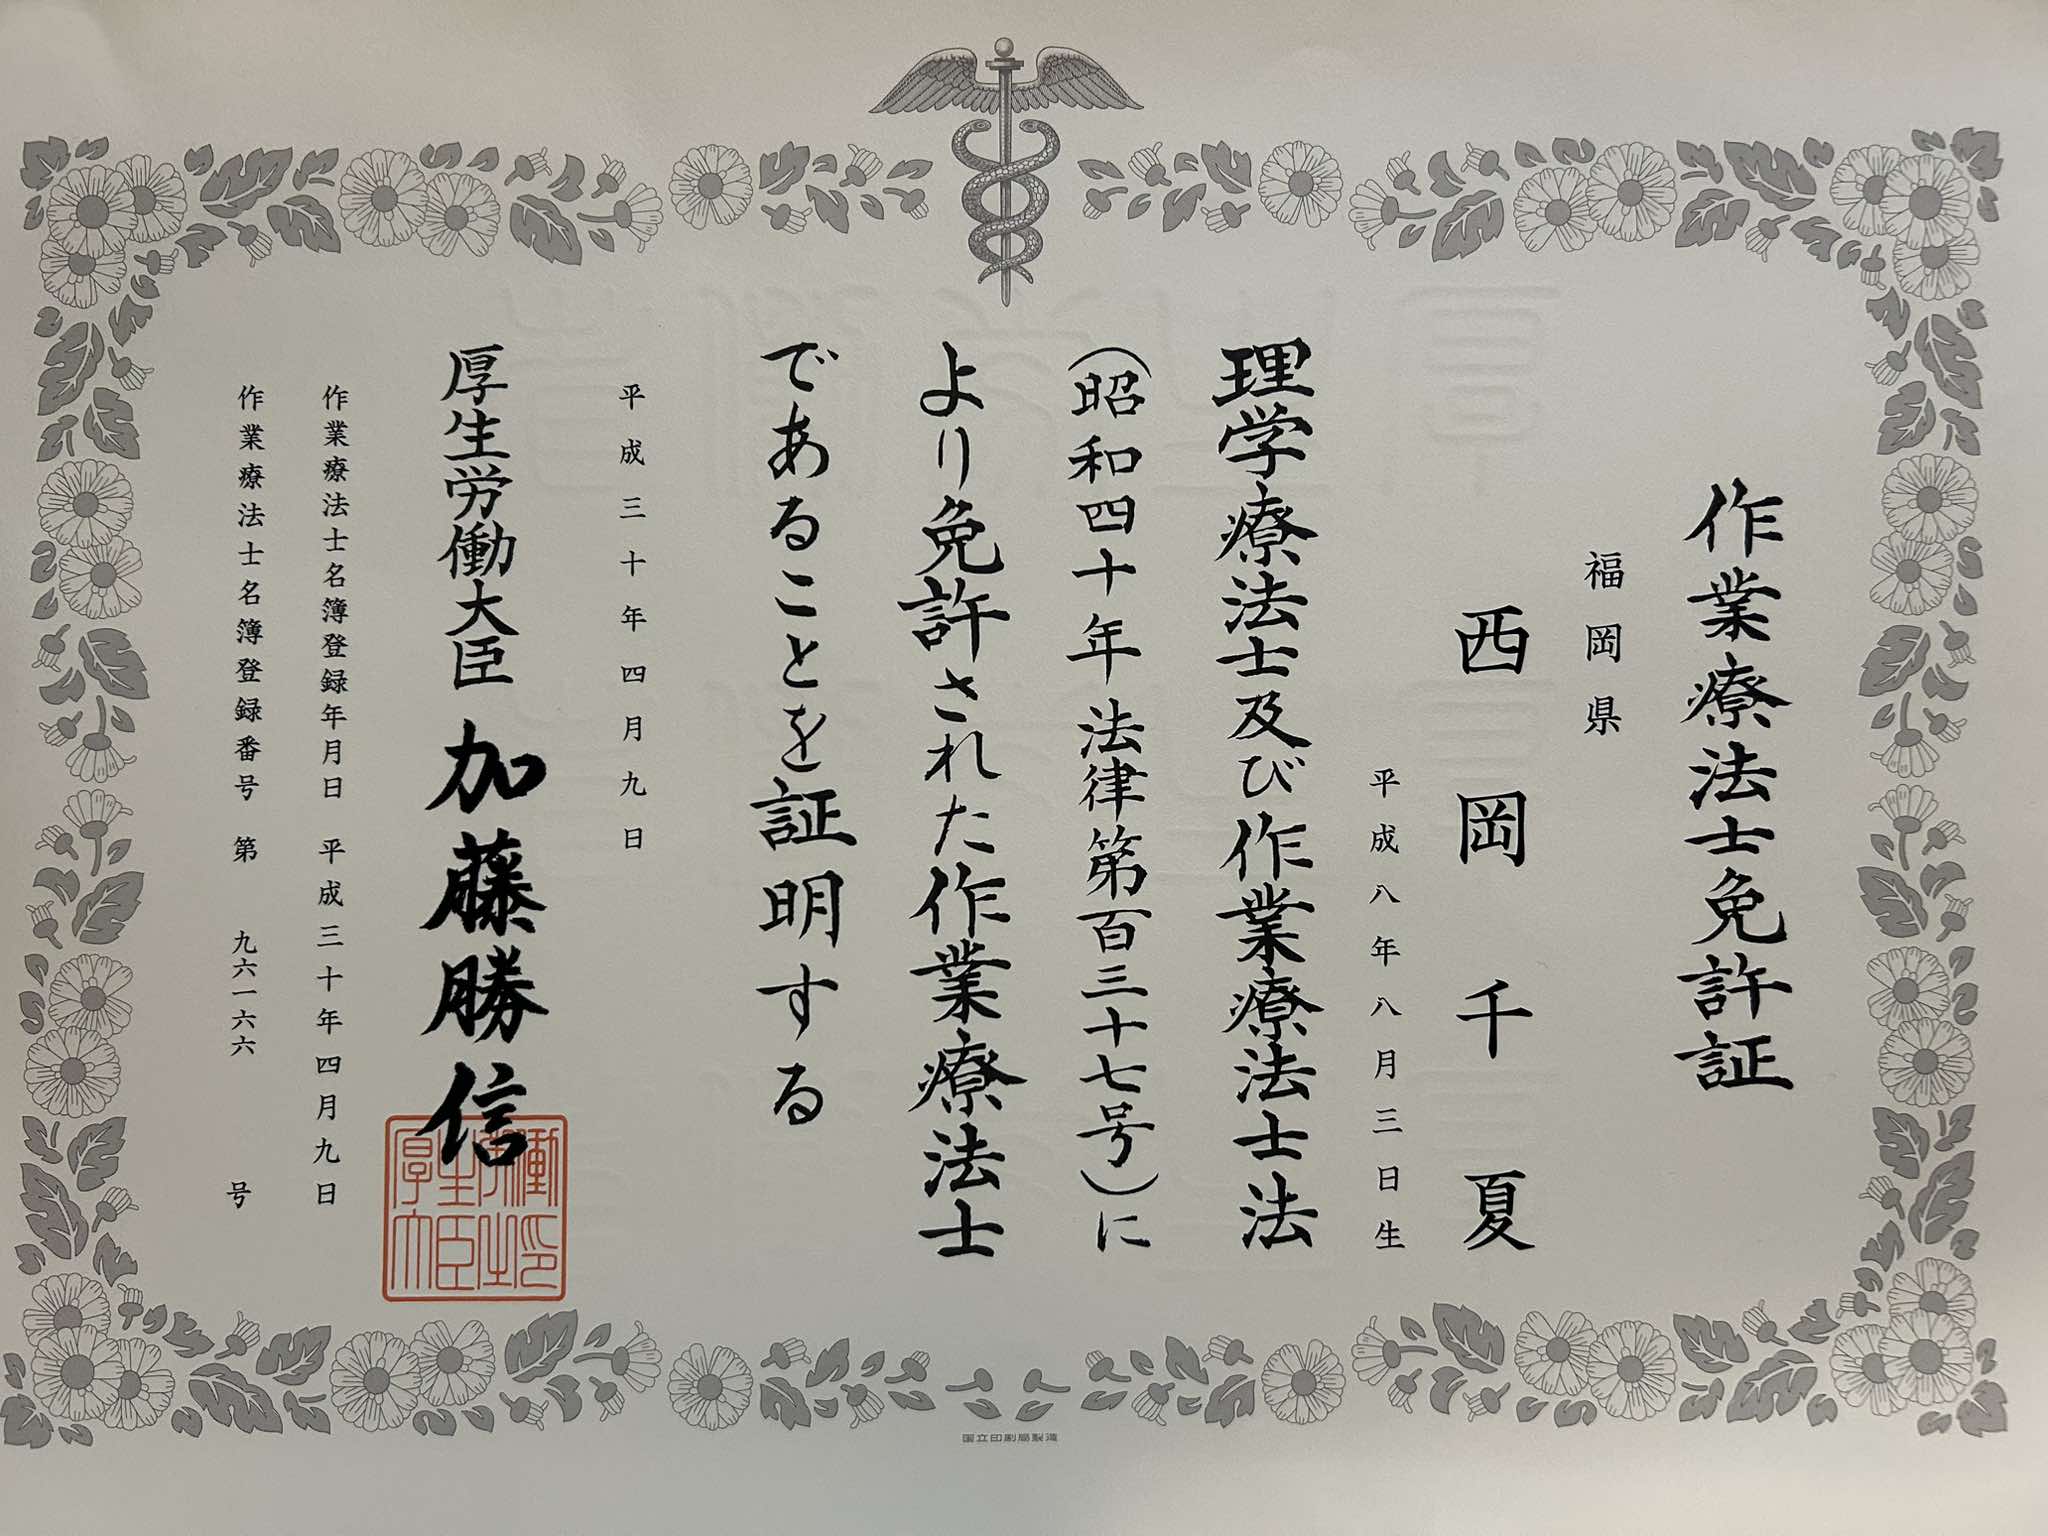 作業療法士免許証
福岡県
西岡千夏
平成八年八月三日生
理学療法士及び作業療法士法
(昭和四十年法律第百三十七号)に
より免許された作業療法士
であることを証明する
平成三十年四月九日
厚生労働大臣 加藤勝信
厚生労働大臣之印
作業療法士名簿登録年月日 平成三十年四月九日
作業療法士名簿登録番号 第 九六一六六 号
国立印刷局製造